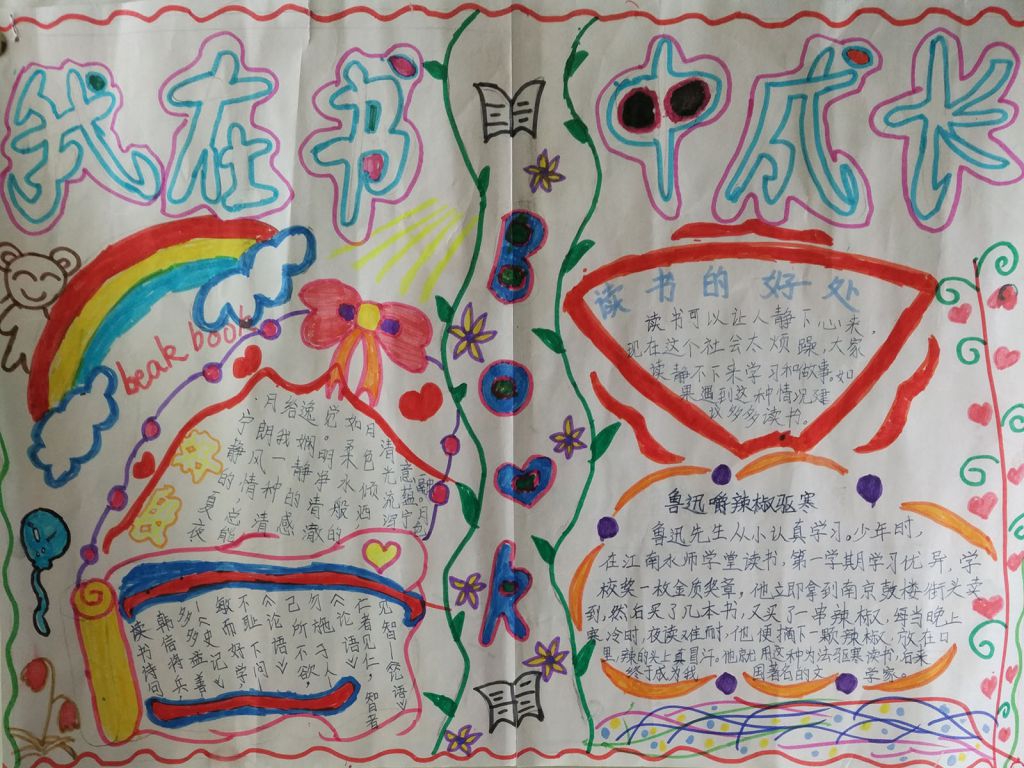 我在书中成长
beak book
BOOK
宁静的夏夜
月朗风情，总能
给我一种清
逸娴静的感
觉。明净清澈
如柔水般的
月色倾洒
清光流泻
意蕴宁
融。月色
读书诗句
韩信将兵
多多益善
—《史记》
敏而好学
不耻下问
《论语》
己所不欲，
勿施于人
《论语》
仁者见仁，智者
见智—《论语》
读书的好处
读书可以让人静下心来，
现在这个社会太烦躁，大家
读静不下来学习和做事。如
果遇到这种情况建
议多多读书。
鲁迅嚼辣椒驱寒
鲁迅先生从小认真学习。少年时，
在江南水师学堂读书，第一学期学习优异，学
校奖一枚金质奖章，他立即拿到南京鼓楼街头卖
到，然后买了几本书，又买了一串辣椒，每当晚上
寒冷时，夜读难耐，他便摘下一颗辣椒，放在口
里，辣的头上直冒汗。他就用这种方法驱寒读书，后来
终于成为我国著名的文学家。